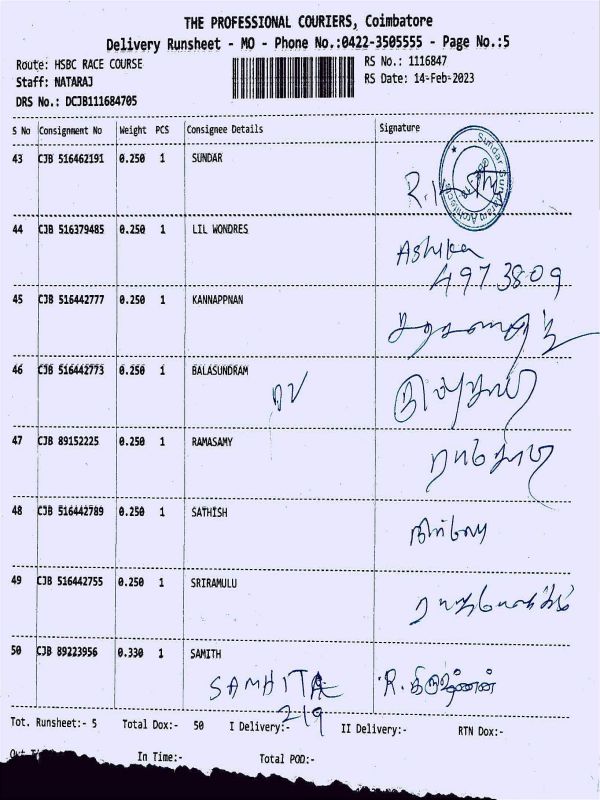 THE PROFESSIONAL COURIERS, Coimbatore
Delivery Runsheet - MO - Phone No.:0422-3505555 - Page No.:5
Route: HSBC RACE COURSE
RS No.: 1116847
Staff: NATARAJ
RS Date: 14-Feb-2023
DRS No.: DCJB111684705
S No Consignment No Weight PCS Consignee Details Signature
43 CJB 516462191 0.250 1 SUNDAR
Sundar Sundaram Architects
44 CJB 516379485 0.250 1 LIL WONDRES
Ashika
4973809
45 CJB 516442777 0.250 1 KANNAPPNAN
46 CJB 516442773 0.250 1 BALASUNDRAM
47 CJB 89152225 0.250 1 RAMASAMY
48 CJB 516442789 0.250 1 SATHISH
49 CJB 516442755 0.250 1 SRIRAMULU
50 CJB 89223956 0.330 1 SAMITH
SAMHITA
219
Tot. Runsheet:- 5 Total Dox:- 50 I Delivery:- II Delivery:- RTN Dox:-
In Time:- Total POD:-